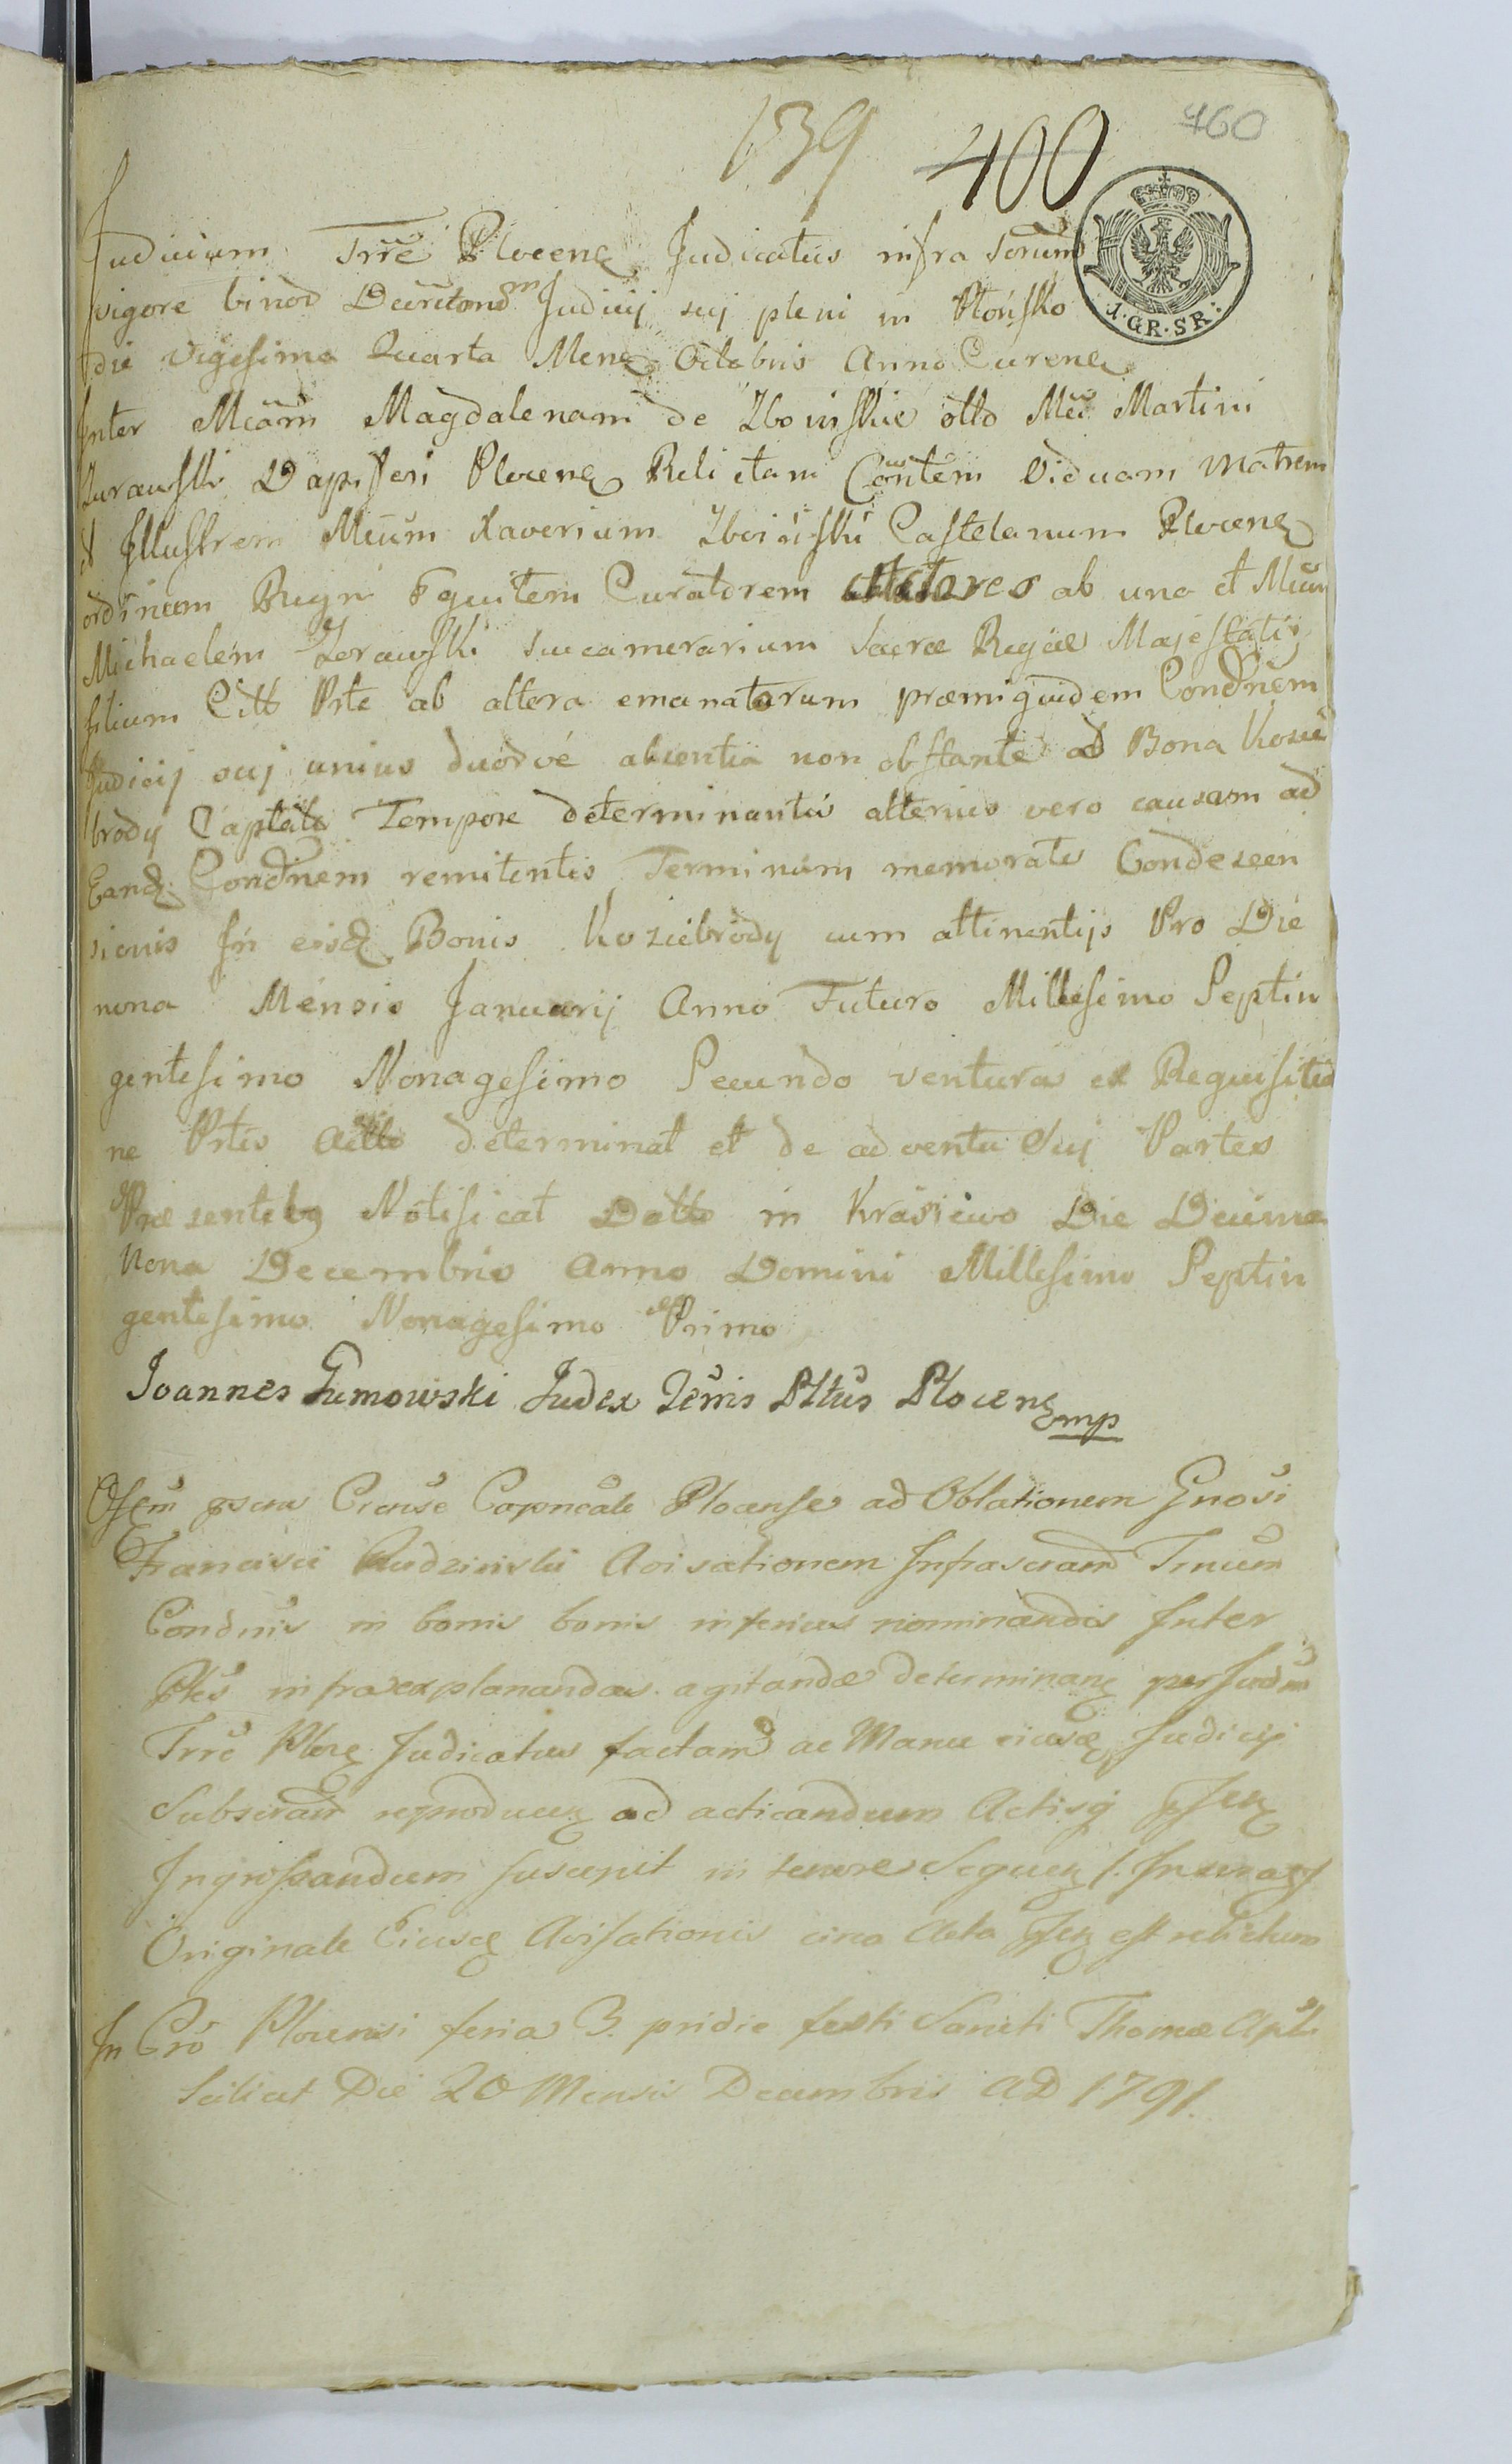 139 400 460
1·GR·SR·
Judicium Trrẽ Plocenę Judicatus infra Scrum
vigore binor Decretorum Judicij sui pleni in Płońsko
die Vigesima Quarta Menę Octobris Anno Curenę
Inter Mcam Magdalenam de Zboinskie olto Mci Martini
Zurawski Dapiferi Plocenę Relictam Contem Viduam Matrem
& Illustrem Mcum Xaverium Zboiński Castelanum Plocenę
ordinum Regni Equitem Curatorem Actores ab una et Mcum
Michaelem Zorawski Succamerarium Sacræ Regiæ Majestatis
filium Citt Prte ab altera emanatorum præmiquidem Condnem
Judicij sui unius duorve absentia non obstante ad Bona Kozie
brody Captato Tempore determinantis alterius vero causam ad
Eandę Condnem remitentis Terminum memorate Condescen
sionis In eisdę Bonis Koziebrody cum attinentijs Pro Die
nona Mensis Januarij Anno Futuro Millesimo Septin
gentesimo Nonagesimo Secundo ventura ex Requisitio
ne Prtis Actto determinat et de adventu Sui Partes
Præsentibg Notificat Datto in Krasiewo Die Decima
Nona Decembris Anno Domini Millesimo Septin
gentesimo Nonagesimo Primo
Joannes Gumowski Judex Terris Pltus Plocenę mp
Offcm Crense Capneale Plocense ad Oblationem Gnosi
Francisci Rudzinski Avisationem Infrascram Trnum
Condnis in bonis bonis inferius nominandis Inter
Ptes infra explanandas agitandæ determinanę per Judm
Trrẽ Plocę Judicatus factam ac Manu eiusdę Judicij
Subscram reproducenę ad acticandum Actisq
Ingrossandum suscepit in tenore Sequenę
Originale Eiusdę Avisationis circa Acta est relictum
In Cró Plocensi feria 3. pridie festi Sancti Thomæ Apli
Scilicet Die 20 Mensis Decembris AD 1791.